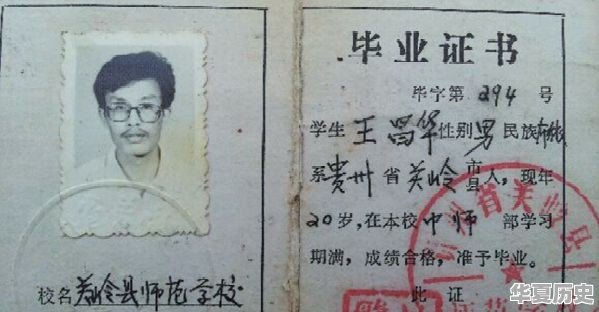 毕业证书
毕字第294号
学生王昌华性别男民族布依
系贵州省关岭市县人，现年
20岁，在本校中师部学习
期满，成绩合格，准予毕业。
此证
校名关岭县师范学校
省关岭县
华夏历史